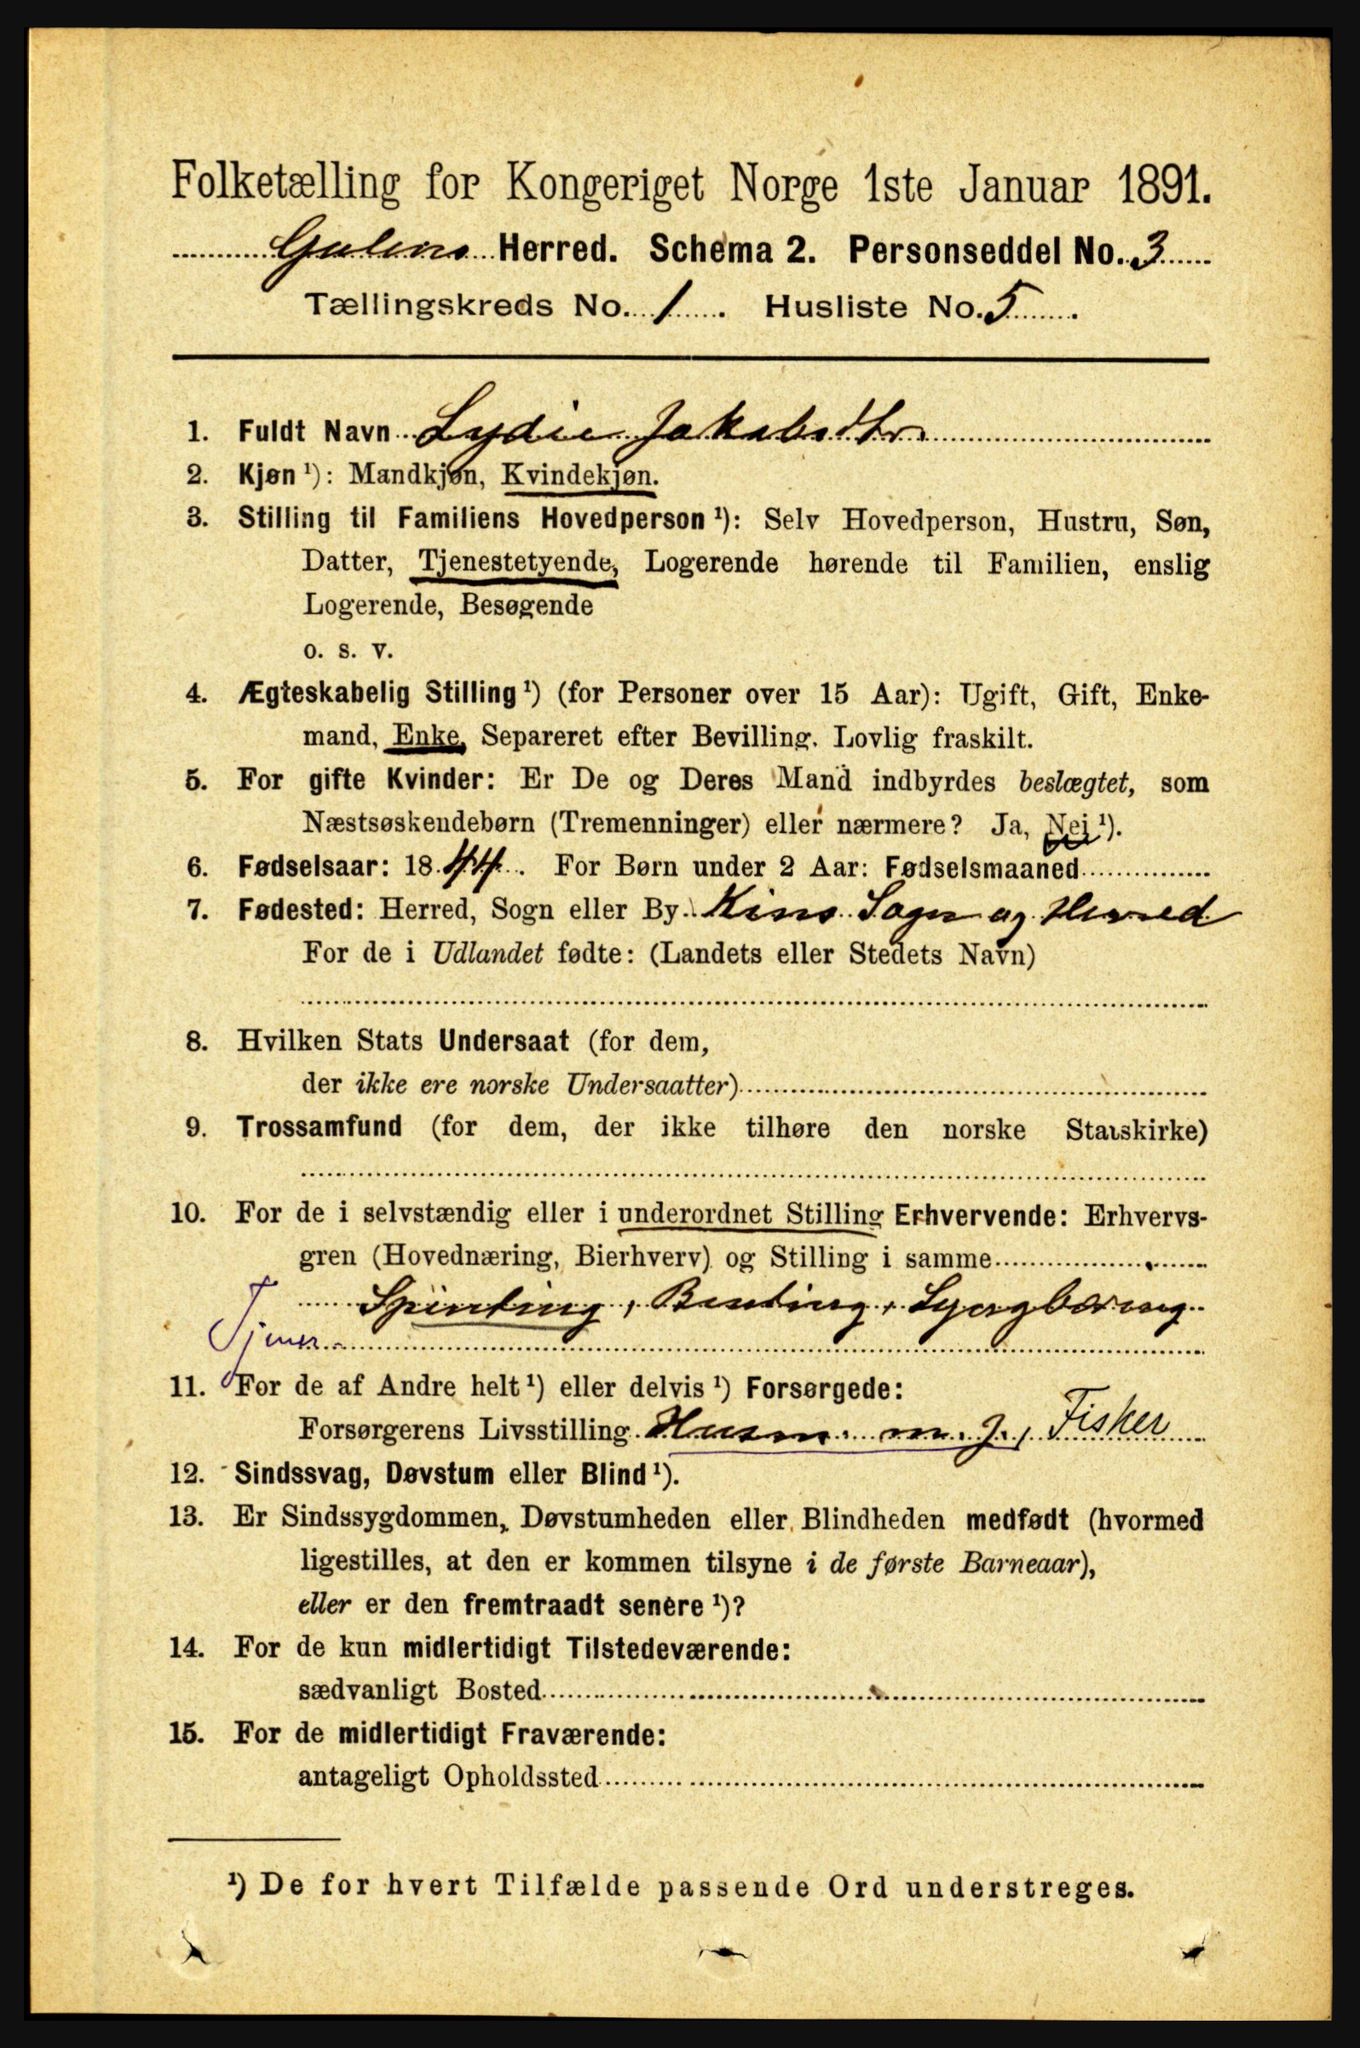 Folketælling for Kongeriget Norge 1ste Januar 1891.
Gulens Herred. Schema 2. Personseddel No. 3
Tællingskreds No. 1. Husliste No. 5.
1. Fuldt Navn Lydie Jakobsdtr.
2. Kjøn ¹): Mandkjøn, Kvindekjøn.
3. Stilling til Familiens Hovedperson ¹): Selv Hovedperson, Hustru, Søn,
Datter, Tjenestetyende, Logerende hørende til Familien, enslig
Logerende, Besøgende
o. s. v.
4. Ægteskabelig Stilling ¹) (for Personer over 15 Aar): Ugift, Gift, Enke-
mand, Enke, Separeret efter Bevilling. Lovlig fraskilt.
5. For gifte Kvinder: Er De og Deres Mand indbyrdes beslægtet, som
Næstsøskendebørn (Tremenninger) eller nærmere? Ja, Nei ¹).
6. Fødselsaar: 1844. For Børn under 2 Aar: Fødselsmaaned
7. Fødested: Herred, Sogn eller By Kins Sogn og Herred
For de i Udlandet fødte: (Landets eller Stedets Navn)
8. Hvilken Stats Undersaat (for dem,
der ikke ere norske Undersaatter)
9. Trossamfund (for dem, der ikke tilhøre den norske Statskirke)
10. For de i selvstændig eller i underordnet Stilling Erhvervende: Erhvervs-
gren (Hovednæring, Bierhverv) og Stilling i samme
Spinding, Binding,
Tjener
11. For de af Andre helt ¹) eller delvis ¹) Forsørgede:
Forsørgerens Livsstilling Husm. m. J., Fisker
12. Sindssvag, Døvstum eller Blind ¹).
13. Er Sindssygdommen, Døvstumheden eller Blindheden medfødt (hvormed
ligestilles, at den er kommen tilsyne i de første Barneaar),
eller er den fremtraadt senere ¹)?
14. For de kun midlertidigt Tilstedeværende:
sædvanligt Bosted
15. For de midlertidigt Fraværende:
antageligt Opholdssted
¹) De for hvert Tilfælde passende Ord understreges.